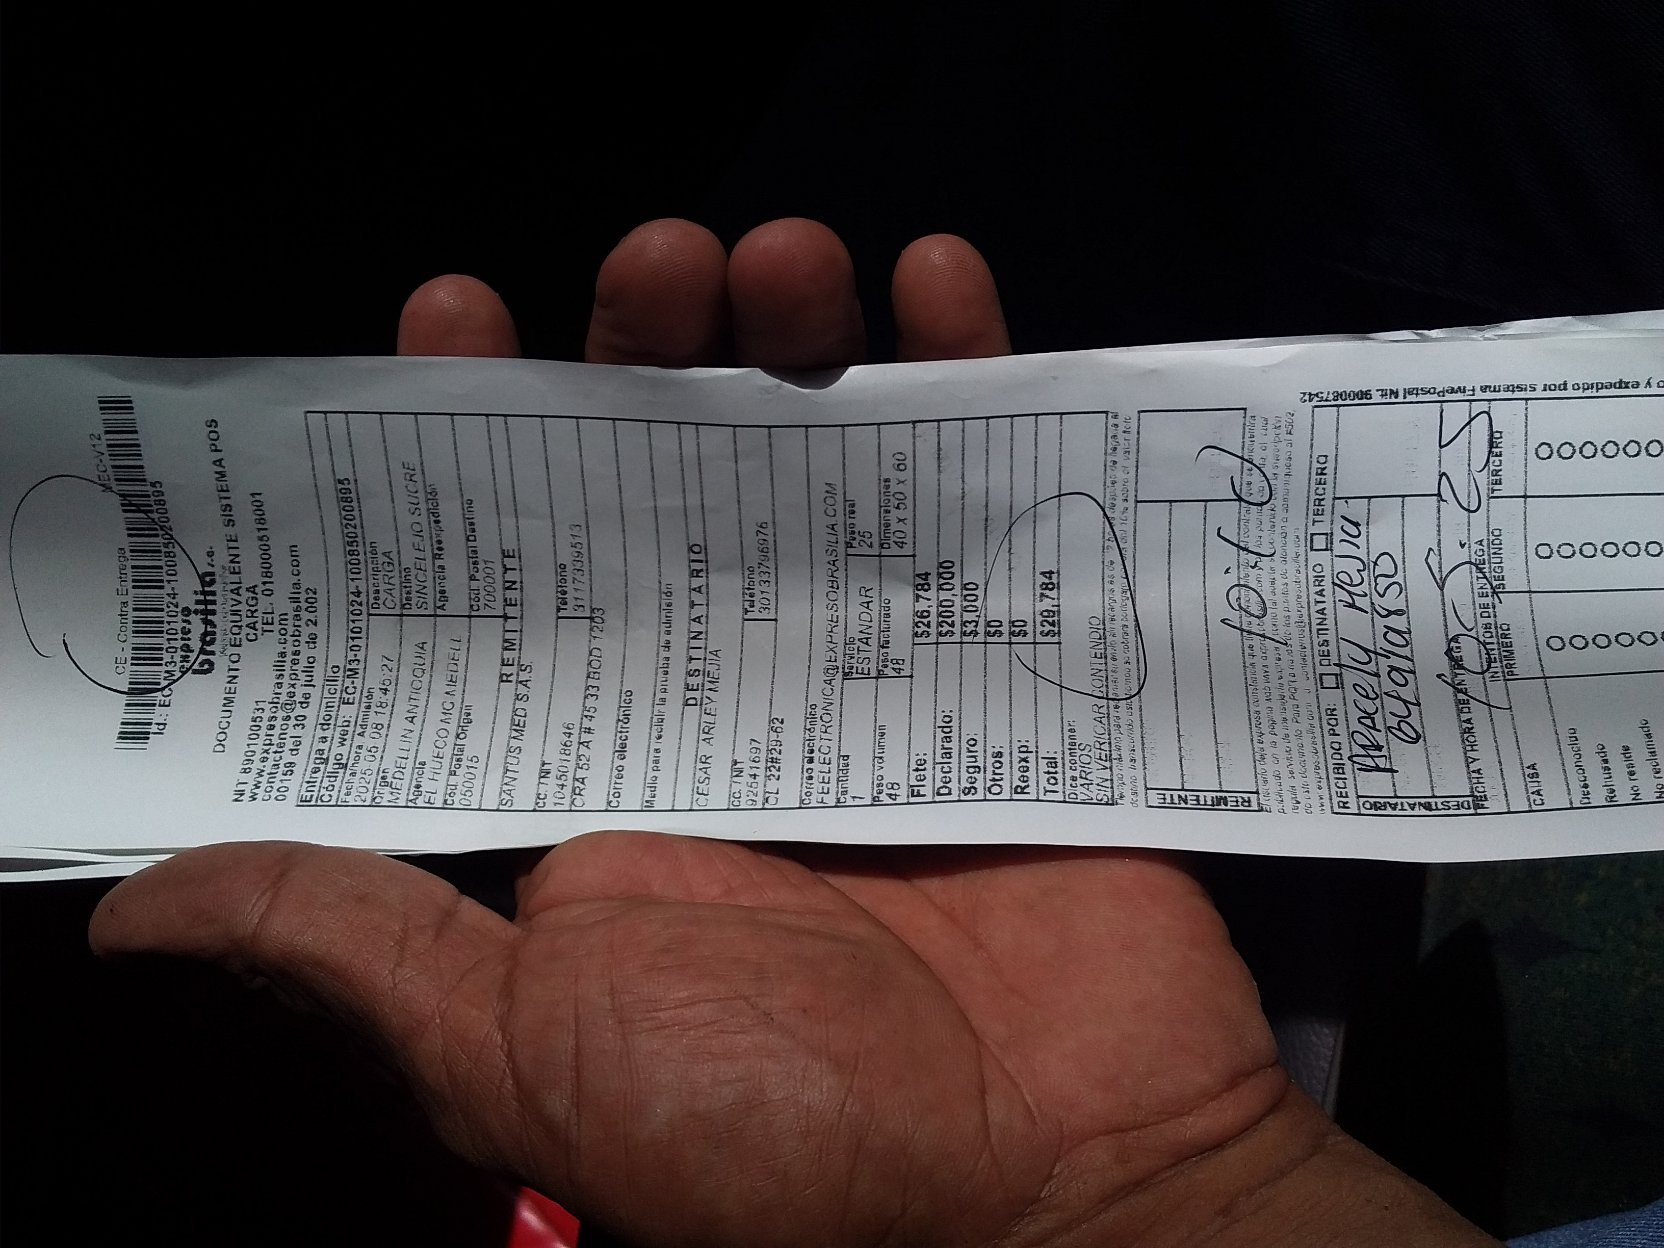 CE - Contra Entrega
MEC-V12
Id.: EC-M3-0101024-1008520200895
expreso
brasilia s.a.
DOCUMENTO EQUIVALENTE SISTEMA POS
CARGA
NIT 890100531 TEL. 018000518001
www.expresobrasilia.com
contactenos@expresobrasilia.com
00159 del 30 de julio de 2.002
Entrega a domicilio
Código Web: EC-M3-0101024-1008520200895
Fecha/hora Admisión Descripción
2025-05-08 18:45:27 CARGA
Origen Destino
MEDELLIN ANTIOQUIA SINCELEJO SUCRE
Agencia Agencia Reexpedición
EL HUECO MC MEDELL
Cód. Postal Origen Cód. Postal Destino
050015 700001
REMITENTE
SANTUS MED S.A.S.
CC. / NIT Teléfono
1045018646 3117339513
CRA 52 A # 45 33 BOD 1203
Correo electrónico
Medio para recibir la prueba de admisión
DESTINATARIO
CESAR ARLEY MEJIA
CC. / NIT Teléfono
92541697 3013796976
CL 22#29-62
Correo electrónico
FEELECTRONICA@EXPRESOBRASILIA.COM
Cantidad Servicio Peso real
1 ESTANDAR 25
Peso volumen Peso facturado Dimensiones
48 48 40 x 50 x 60
Flete: $26,784
Declarado: $200,000
Seguro: $3,000
Otros: $0
Reexp: $0
Total: $29,784
Dice contener:
VARIOS
SIN VERICAR CONTENDIO
REMITENTE
RECIBIDO POR: DESTINATARIO TERCERO
Aracely Mejia
64919850
DESTINATARIO
FECHA Y HORA DE ENTREGA
INTENTOS DE ENTREGA
PRIMERO SEGUNDO TERCERO
CAUSA
Desconocido
Rehusado
No reside
No reclamado
o y expedido por sistema FivePostal Nit. 900087542